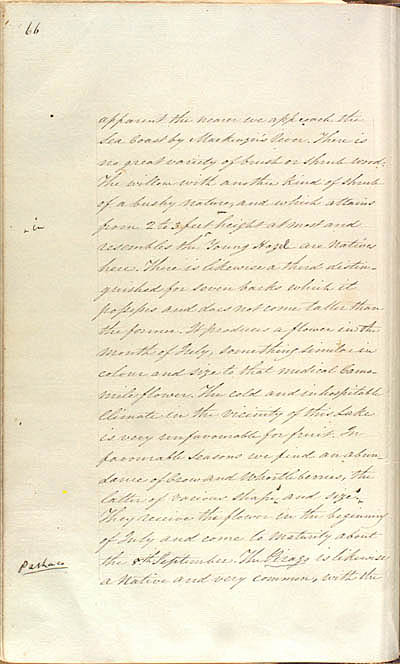 66
apparent the nearer we approach the
Sea Coast by Mackenzie's River. There is
no great variety of brush or shrub wood.
The willow with another kind of shrub
of a bushy nature, and which attains
in
from 2 to 3 feet height at most and
resembles the Young Hazel are Natives
here. There is likewise a third distin-
guished for seven barks which it
possesses and does not come taller than
the former. It produces a flower in the
month of July, something similar in
colour and size to that medical Camo
mile flower. The cold and inhospitable
Climate in the vicinity of this Lake
is very unfavourable for fruit. In
favourable seasons we find an abun-
dance of Crow and Whortleberries, the
latter of various shapes and sizes.
They receive the flower in the beginning
of July and come to maturity about
the 8th September. The is likewise
a Native and very common, with the